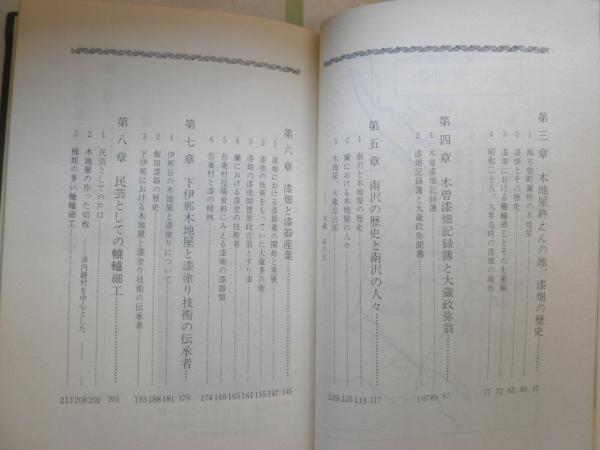 第三章 木地屋終えんの地、漆畑の歴史……47
1 南木曽町蘭桂の木地屋……47
2 漆畑とその歴史……49
3 漆畑における轆轤細工とその生産……62
4 昭和二十八、九年当時の漆畑の現況……72
77
第四章 木曽漆畑記録簿と大蔵政弥翁……87
1 木曽漆畑記録簿……89
2 漆畑記録簿と大蔵政弥聞書……107
第五章 南沢の歴史と南沢の人々……117
1 南沢と木地屋の歴史……119
2 蘭における木地屋の人々……125
3 木地屋、大蔵忠治郎……129
第六章 漆畑と漆器産業……145
1 漆畑における漆器業の開始と発展……147
2 漆塗の技術をもっていた大蔵多兵衛……155
3 漆畑の漆塗師勝原政吉翁とすり漆……161
4 蘭における漆塗の技術者……165
5 吾妻村役場資料にみえる漆畑の漆器類……169
6 吾妻村と漆の植林……174
第七章 下伊那木地屋と漆塗り技術の伝承者……179
1 伊那谷の木地屋と漆塗りについて……181
2 飯田漆器の歴史……188
3 下伊那における木地屋と漆塗り技術の伝承者……193
第八章 民芸としての轆轤細工……201
1 民芸としての片口……201
2 木地屋の作った切板 ――清内路村を中心とした――……208
3 種類の多い轆轤細工……213